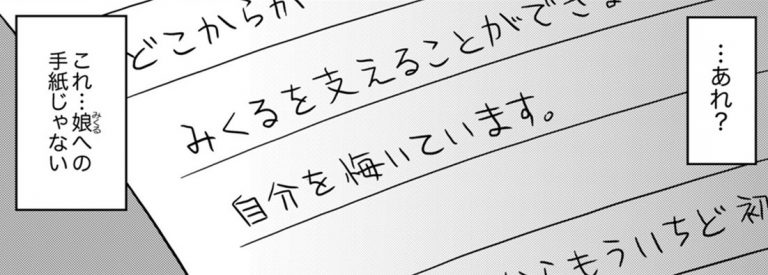 …あれ？
どこからか
みくるを支えることができ
自分を悔いています。
らもういちど初
これ…娘への
手紙じゃない
みくる